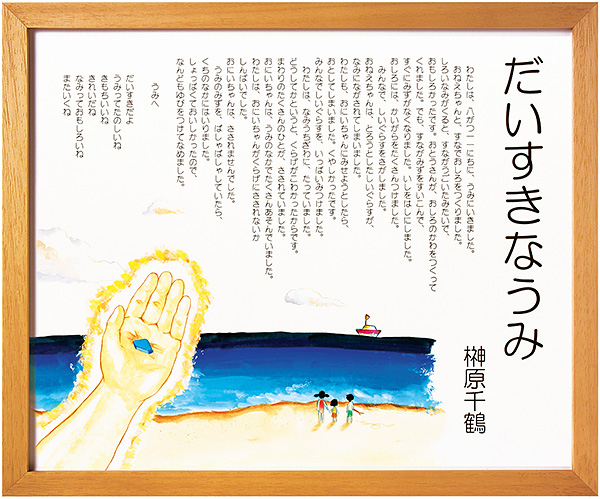 だいすきなうみ
榊原千鶴
わたしは、八がつ一一にちに、うみにいきました。
おねえちゃんと、すなでおしろをつくりました。
しろいなみがくると、すながうごいたみたいで、
おもしろかったです。おとうさんが、おしろのかわをつくって
くれました。でも、すながみずをすいこんで、
すぐにみずがなくなりました。いしをはしにしました。
おしろには、かいがらをたくさんつけました。
みんなで、しいぐらすをさがしました。
おねえちゃんは、とろうとしたしいぐらすが、
なみにながされてしまいました。
わたしも、おにいちゃんにみせようとしたら、
おとしてしまいました。くやしかったです。
みんなでしいぐらすを、いっぱいみつけました。
わたしは、なみうちぎわに、たっていました。
どうしてかというと、くらげがこわかったからです。
まわりのたくさんのひとが、さされていました。
おにいちゃんは、うみのなかでたくさんあそんでいました。
わたしは、おにいちゃんがくらげにさされないか
しんぱいでした。
おにいちゃんは、さされませんでした。
うみのみずを、ぱしゃぱしゃしていたら、
くちのなかにはいりました。
しょっぱくておいしかったので、
なんどもゆびをつけてなめました。
うみへ
だいすきだよ
うみってたのしいね
きもちいいね
きれいだね
なみっておもしろいね
またいくね